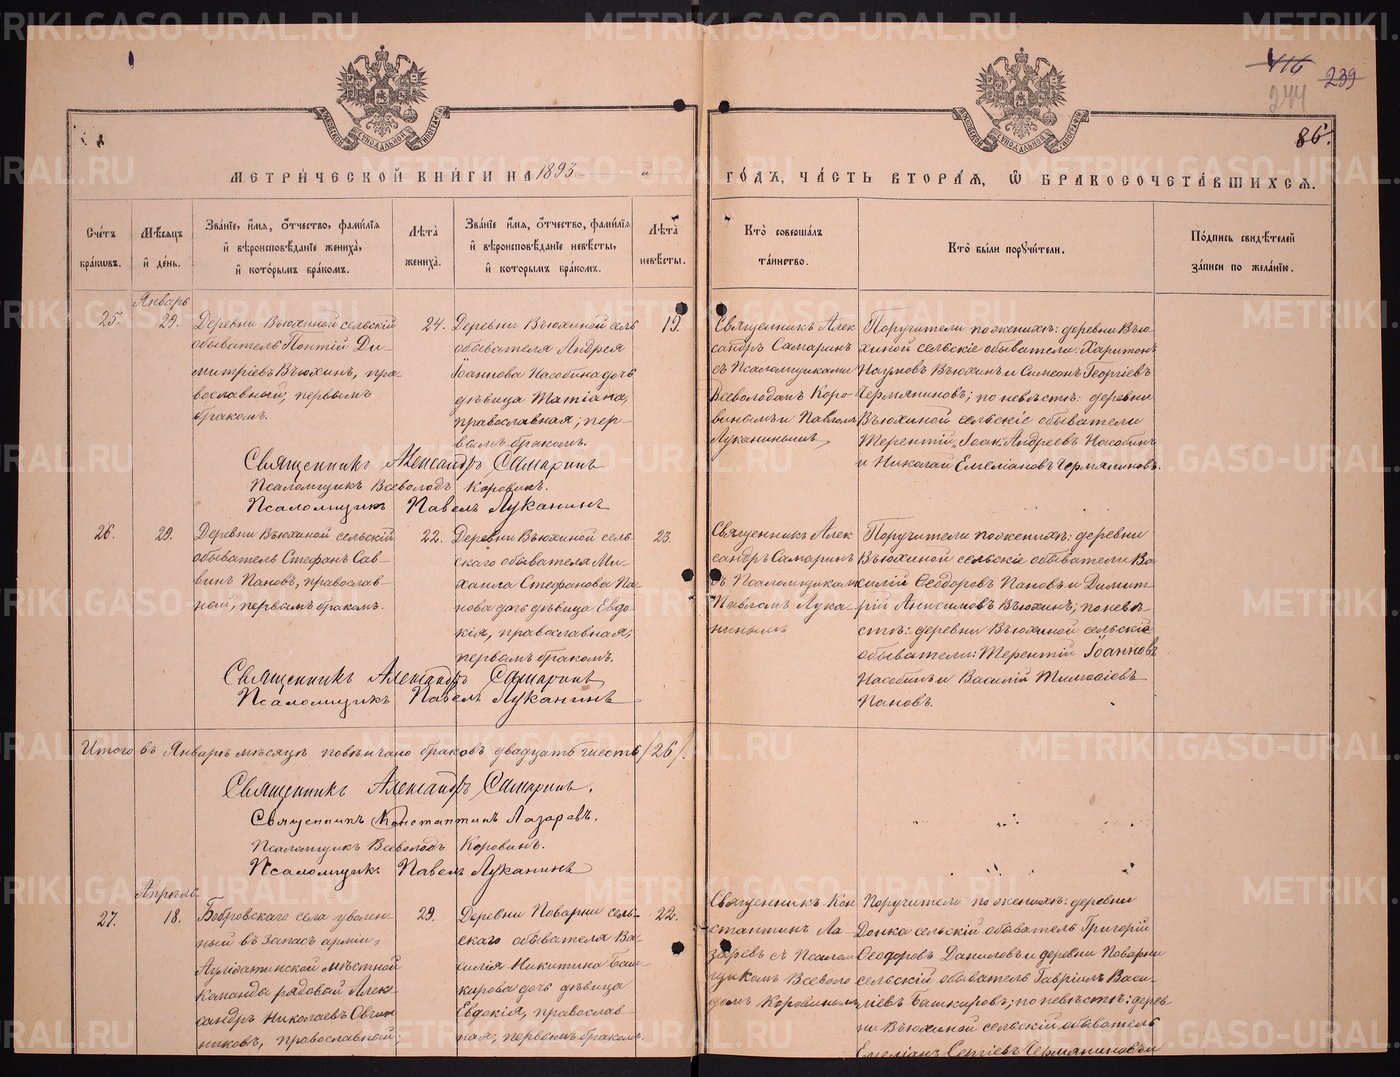 METRIKI.GASO-URAL.RU
116
239
244
86.
МЕТРИЧЕСКОЙ КНИГИ НА 1893 й
ГОДЪ, ЧАСТЬ ВТОРАЯ, Ѡ БРАКОСОЧЕТАВШИХСЯ.
Счётъ браковъ.
Мѣсяцъ и день.
Званіе, имя, отчество, фамилія и вѣроисповѣданіе жениха, и которымъ бракомъ.
Лѣта жениха.
Званіе имя, отчество, фамилія и вѣроисповѣданіе невѣсты, и которымъ бракомъ.
Лѣта невѣсты.
Кто совершалъ таинство.
Кто были поручители.
Подпись свидѣтелей записи по желанію.
Январь
25.
29.
Деревни Вьюхиной сельскій
обыватель Понтій Ди-
митріевъ Вьюхинъ, пра-
вославный, первымъ
бракомъ.
24.
Деревни Вьюхиной сель
обывателя Андрея
Іоаннова Насобина дочь
дѣвица Татіана,
православная; пер-
вымъ бракомъ.
19.
Священникъ Алек
сандръ Самаринъ
съ Псаломщиками
Всеволодомъ Коро-
винымъ и Павломъ
Луканинымъ
Поручители по женихѣ: деревни Вью-
хиной сельскіе обыватели: Харитонъ
Наумовъ Вьюхинъ и Симеонъ Георгіевъ
Чермяниновъ; по невѣстѣ: деревни
Вьюхиной сельскіе обыватели
Терентій Іоак. Андреевъ Насобинъ
и Николай Емеліановъ Чермяниновъ.
Священникъ Александръ Самаринъ
Псаломщикъ Всеволодъ Коровинъ.
Псаломщикъ Павелъ Луканинъ
26.
29.
Деревни Вьюхиной сельскій
обыватель Стефанъ Сав-
винъ Пановъ, православ-
ный, первымъ бракомъ.
22.
Деревни Вьюхиной сель-
скаго обывателя Ми-
хаила Стефанова Па-
нова дочь дѣвица Евдо-
кія, православная,
первымъ бракомъ.
23.
Священникъ Алек
сандръ Самаринъ
съ Псаломщикомъ
Павломъ Лука-
нинымъ
Поручители по женихѣ: деревни
Вьюхиной сельскіе обыватели Ва-
силій Ѳеодоровъ Пановъ и Димит-
рій Анисимовъ Вьюхинъ; по невѣ-
стѣ: деревни Вьюхиной сельскіе
обыватели: Терентій Іоанновъ
Насобинъ и Василій Тимоѳіевъ
Пановъ.
Священникъ Александръ Самаринъ
Псаломщикъ Павелъ Луканинъ
Итого въ Январѣ мѣсяцѣ повѣнчано браковъ двадцать шесть /26/.
Священникъ Александръ Самаринъ.
Священникъ Константинъ Лазаревъ.
Псаломщикъ Всеволодъ Коровинъ.
Псаломщикъ Павелъ Луканинъ
Апрѣль
27.
18.
Бобровскаго села уволен-
ный въ запасъ арміи,
Ауліоатинской мѣстной
команды рядовой Алек-
сандръ Николаевъ Овчин
никовъ, православный;
29.
Деревни Поварни сель-
скаго обывателя Ва-
силія Никитина Баш-
кирова дочь дѣвица
Евдокія, православ-
ная, первымъ бракомъ.
22.
Священникъ Кон
стантинъ Ла-
заревъ съ Псалом
щикомъ Всеволо-
домъ Коровинымъ
Поручители по женихѣ: деревни
Донка сельскій обыватель Григорій
Ѳеодоровъ Даниловъ и деревни Поварни
сельскій обыватель Гавріилъ Васи-
ліевъ Башкировъ; по невѣстѣ: дерев
ни Вьюхиной сельскій обыватель
Емеліанъ Сергіевъ Чермяниновъ и